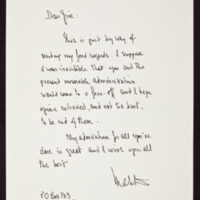 Dear Jim:
This is just by way of
sending my fond regards. I suppose
it was inevitable that you and the
present miserable administration
would come to a face-off and I hope
you're relieved, and not too hurt,
to be rid of them.
My admiration for all you've
done is great and I wish you all
the best
P.O. Box